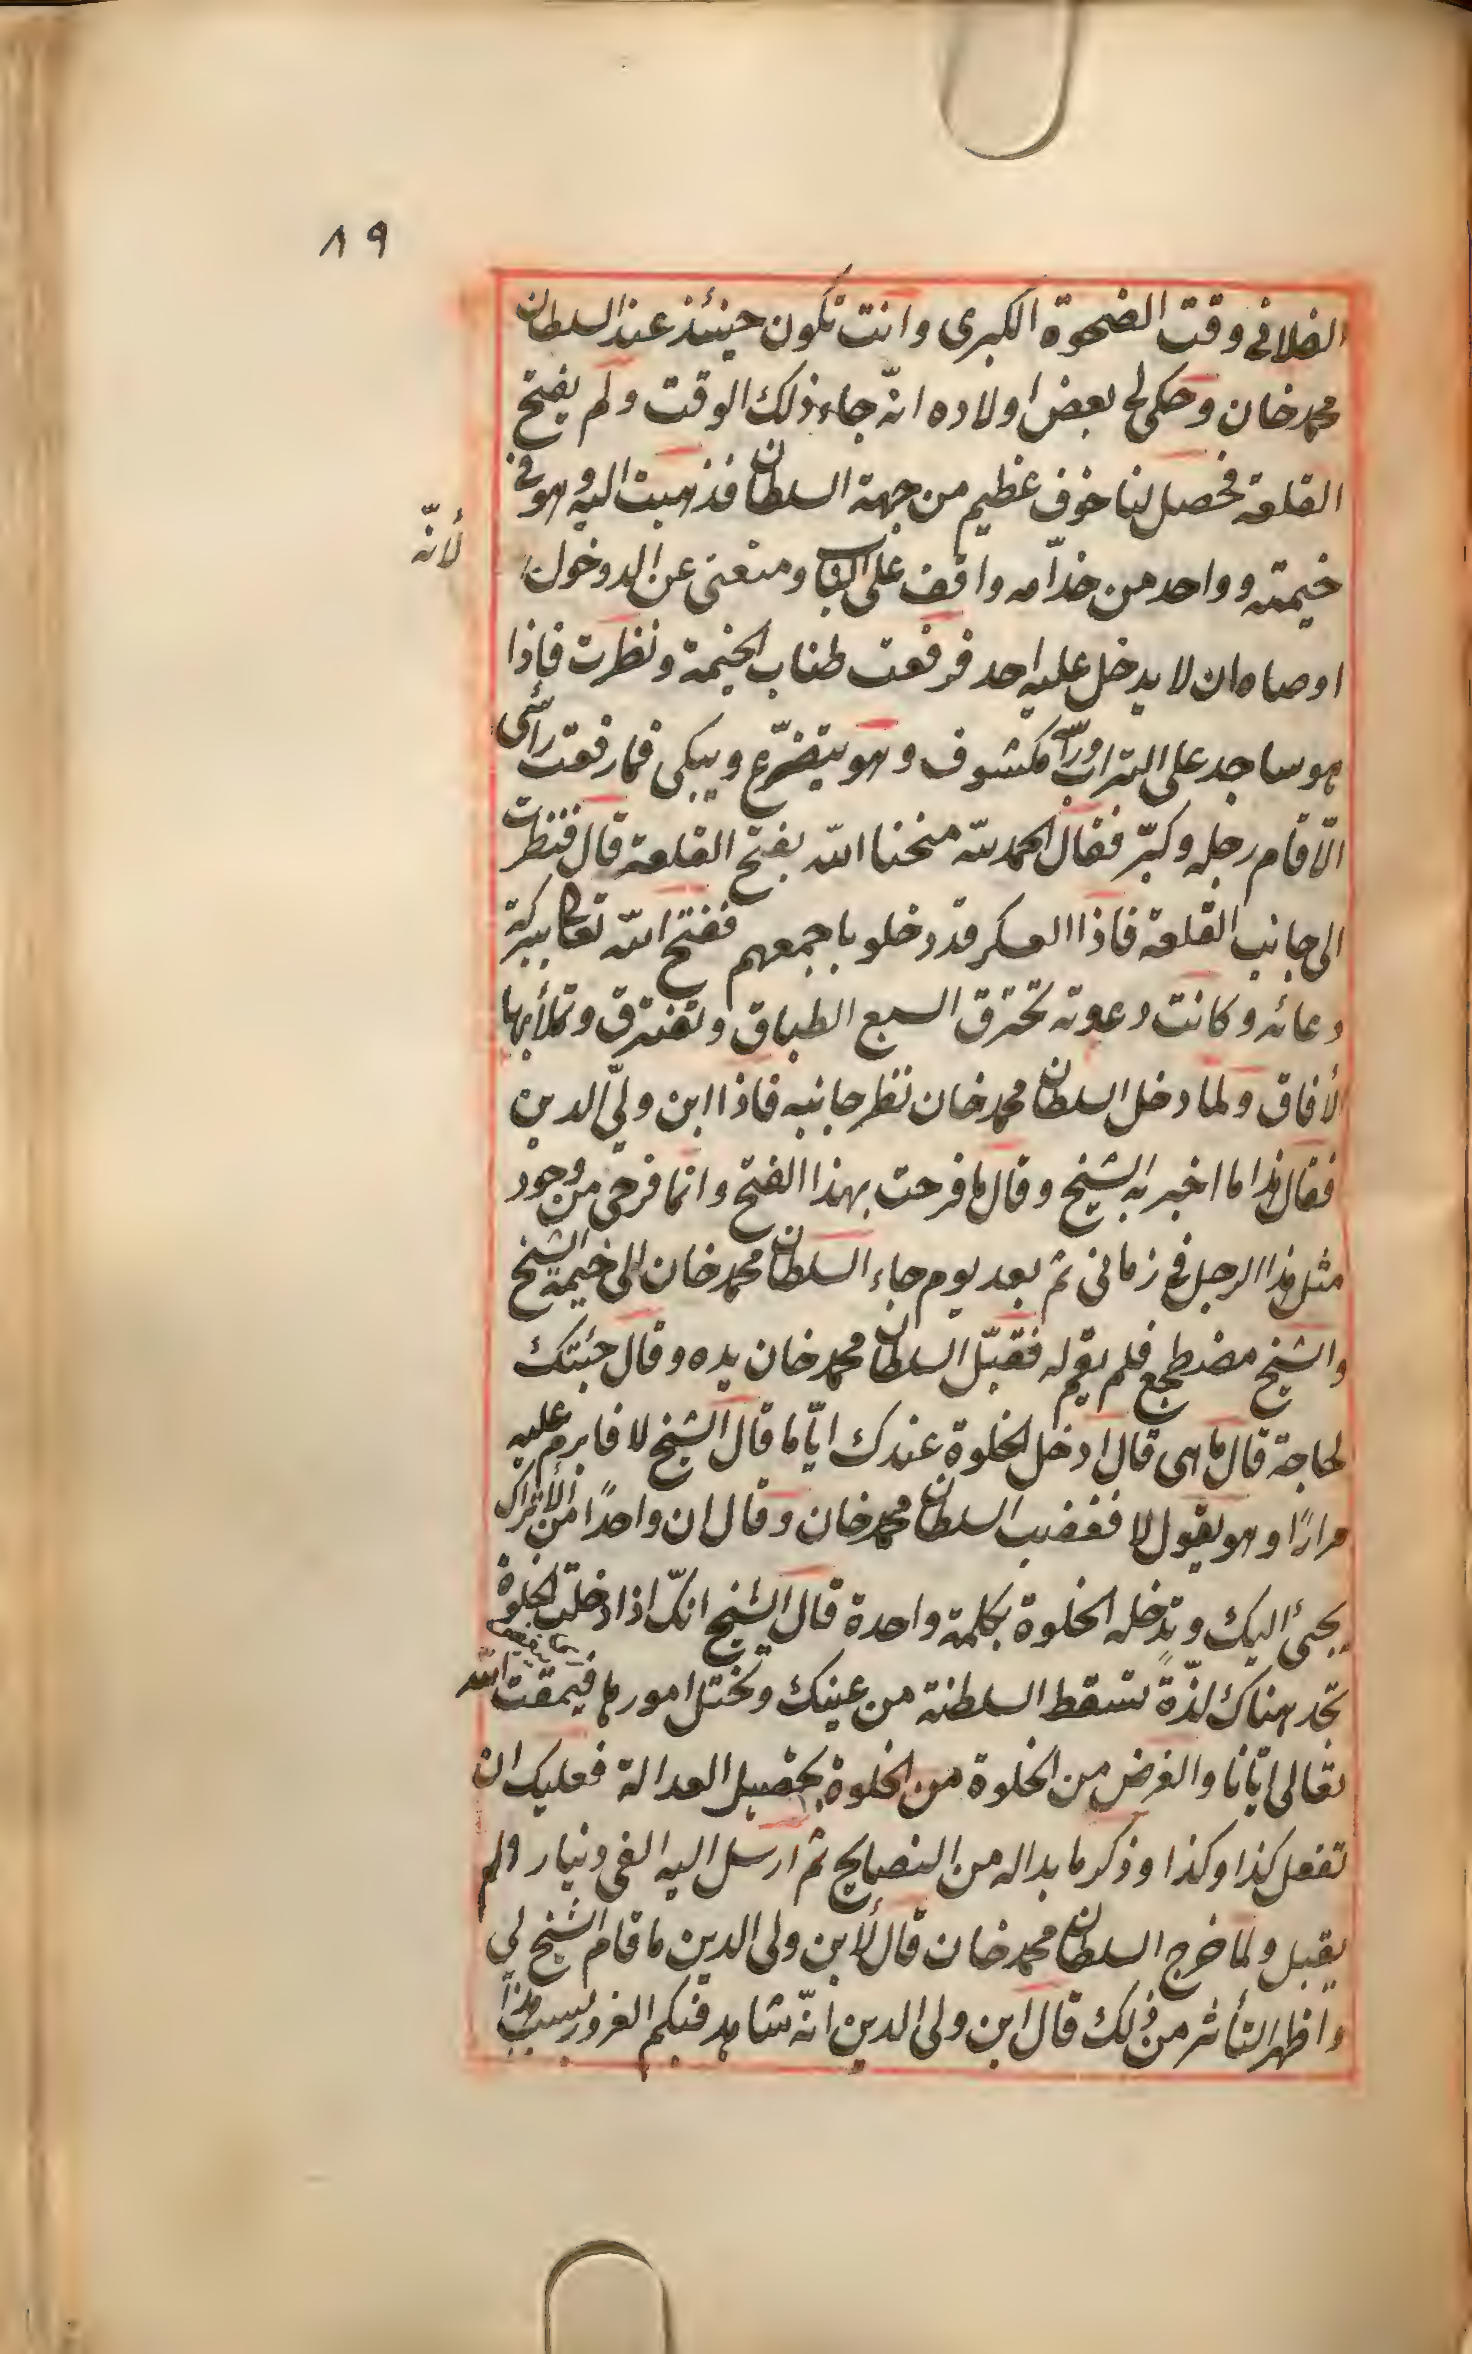 ٨٩
الفلانى وقت الضحوة الكبرى وانت تكون حينئذ عند السلطان
محمد خان وحكى لى بعض اولاده انّه جاء ذلك الوقت ولم يفتح
القلعة فحصل لنا خوف عظيم من جهة السلطان فذهبت اليه وهو فى
خيمته وواحد من خدّامه واقف على الباب ومنعنى عن الدوخول
لأنّه
اوصاه ان لا يدخل عليه احد فرفعت طناب الخيمة ونظرت فاذا
هو ساجد على التراب ورأسه مكشوف وهو يتضرّع ويبكى فما رفعت رأسى
الّا قام رجله وكبّر فقال الحمد لله منحنا الله بفتح القلعة قال فنظرت
الى جانب القلعة فاذا العسكر قد دخلو باجمعهم ففتح الله تعالى ببركة
دعائه وكانت دعوته تخترق السبع الطباق وتفترق وتملأ بها
لأفاق ولما دخل السلطان محمد خان نظر جانبه فاذا ابن ولىّ الدين
فقال هذا ما اخبر به الشيخ وقال ما فرحت بهذا الفتح وانما فرحى من وجود
مثل هذا الرجل فى زمانى ثم بعد يوم جاء السلطان محمد خان الى خيمة الشيخ
والشيخ مضطجع فلم يقم له فقبّل السلطان محمد خان يده وقال جئتك
لحاجة قال ما هى قال ادخل الخلوة عندك ايّاما قال الشيخ لا فابرم عليه
مرارًا وهو يقول لا فغضب السلطان محمد خان وقال ان واحدًا من الأتراك
يجئ اليك وتدخله الخلوة بكلمة واحدة قال الشيخ انّك اذا دخلت الخلوة
تجد هناك لذّة تسقط السلطنة من عينك وتختل امورها فيمقت الله
تعالى ايّانا والغرض من الخلوة من الخلوة تحصيل العدالة فعليك ان
تفعل كذا وكذا وذكر ما بدا له من النصايح ثم ارسل اليه الفى دينار ولم
يقبل ولما خرج السلطان محمد خان قال لأبن ولى الدين ما قام الشيخ لى
واظهر التأثر من ذلك قال ابن ولى الدين انّه شاهد فيكم الغرور بسبب هذا